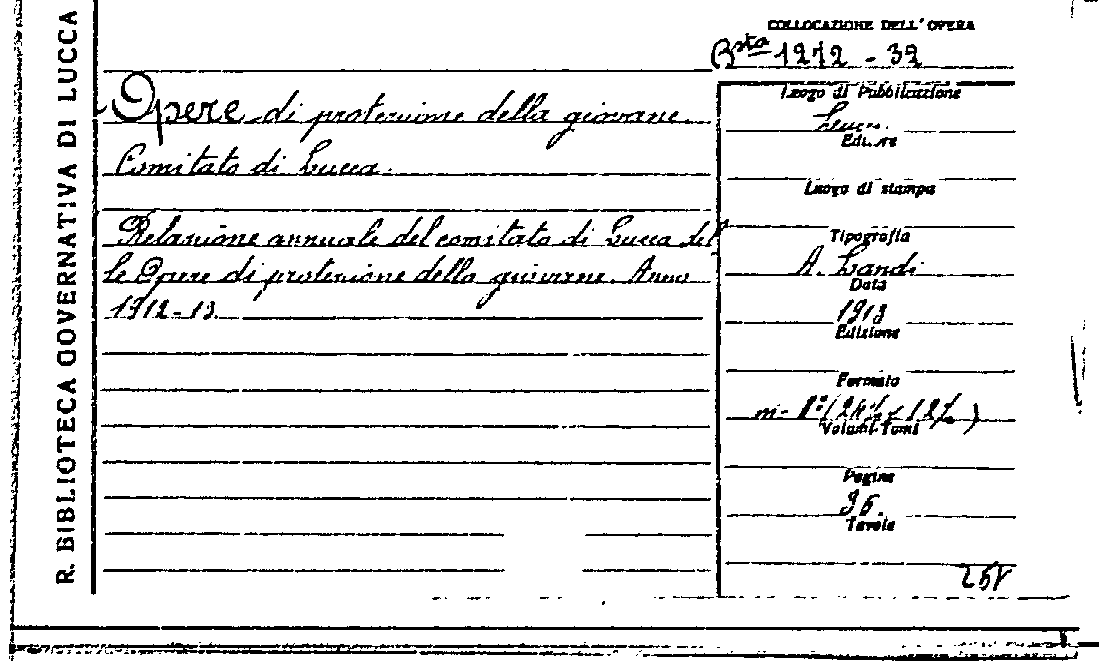 R. BIBLIOTECA GOVERNATIVA DI LUCCA
COLLOCAZIONE DELL'OPERA
Bsta 1212 - 32
Opere di protezione della giovane.
Comitato di Lucca.
Relazione annuale del comitato di Lucca del
le Opere di protezione della giovane. Anno
1912-13
Luogo di Pubblicazione
Lucca.
Editore
Luogo di stampa
Tipografia
A. Landi
Data
1913
Edizione
Formato
Volumi-Tomi
Pagine
Tavole